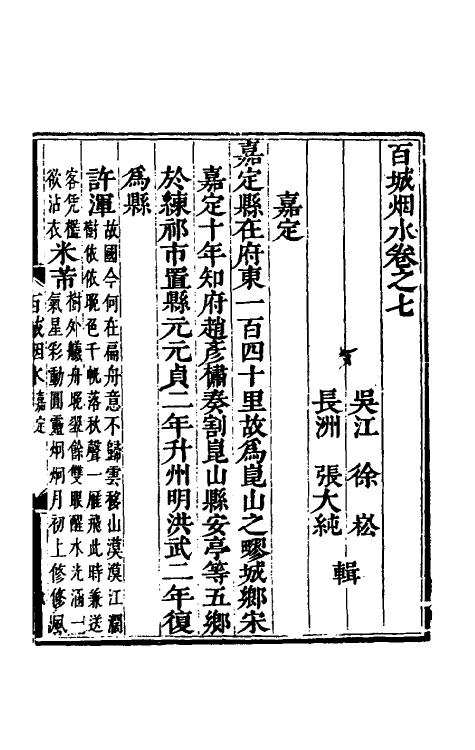 百城烟水卷之七
吳江 徐崧
長洲 張大純
輯
嘉定
嘉定縣在府東一百四十里故爲崑山之疁城鄉宋
嘉定十年知府趙彥橚奏割崑山縣安亭等五鄉
於練祁市置縣元元貞二年升州明洪武二年復
爲縣
許渾 故國今何在扁舟意不歸雲移山漠漠江濶
樹依依晚色千帆落秋聲一雁飛此時兼送
客凭檻
欲沾衣 米芾 樹外艤舟晚翠餘雙眼醒水光涵一
氣星彩動圓靈炯炯月初上修修風
百城烟水 嘉定